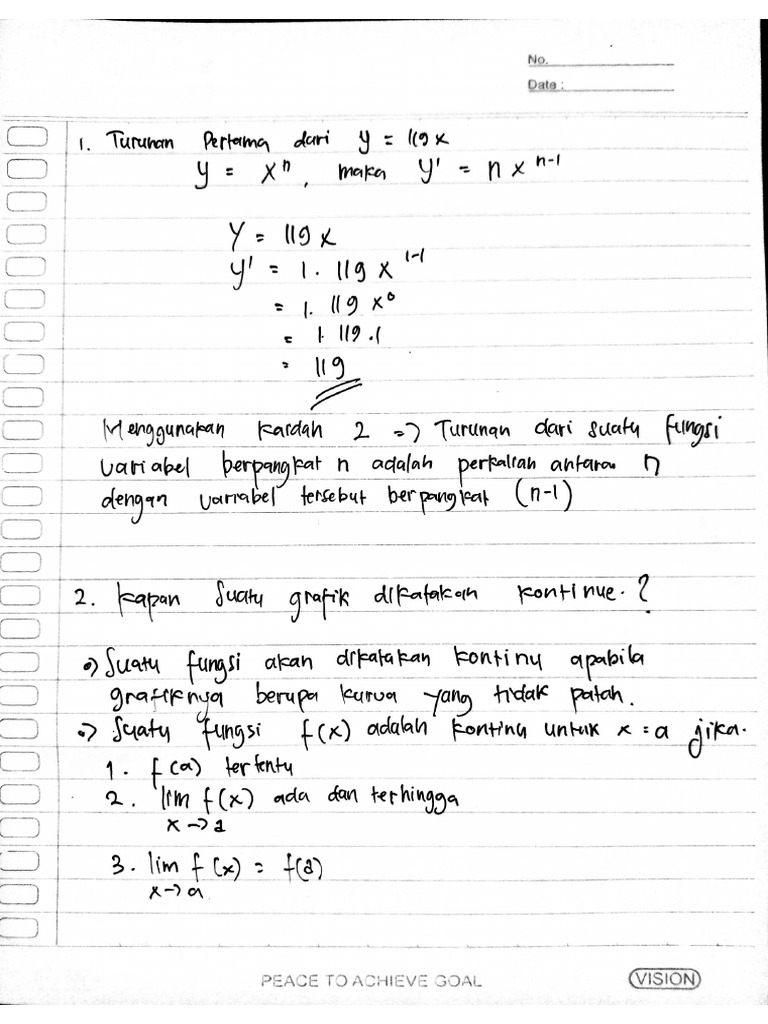 No.
Date :
1. Turunan Pertama dari y = 119x
y = xⁿ, maka y' = n x ⁿ⁻¹
Y = 119 x
y' = 1 . 119 x ¹⁻¹
= 1. 119 x⁰
= 1 119 .1
= 119
Menggunakan Kaidah 2 => Turunan dari suatu fungsi
variabel berpangkat n adalah perkalian antara n
dengan variabel tersebut berpangkat (n-1)
2. Kapan Suatu grafik dikatakan kontinue. ?
•) Suatu fungsi akan dikatakan kontinu apabila
grafiknya berupa kurva yang tidak patah.
•) Suatu fungsi f(x) adalah kontinu untuk x = a jika.
1. f(a) tertentu
2. lim f(x) ada dan terhingga
x -> a
3. lim f(x) = f(a)
x -> a
PEACE TO ACHIEVE GOAL
VISION